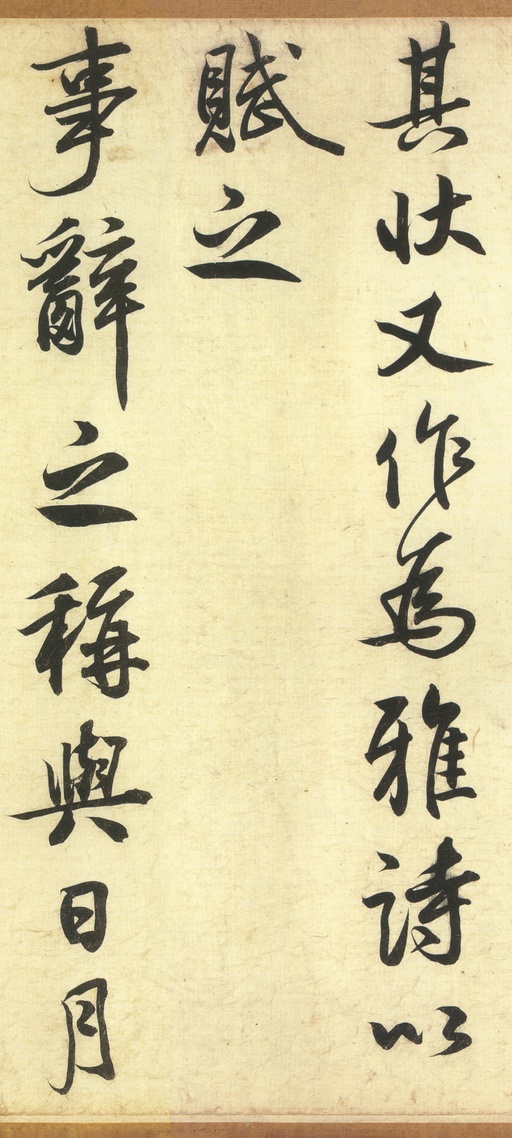 其狀又作為雅詩以
賦之
事辭之稱與日月